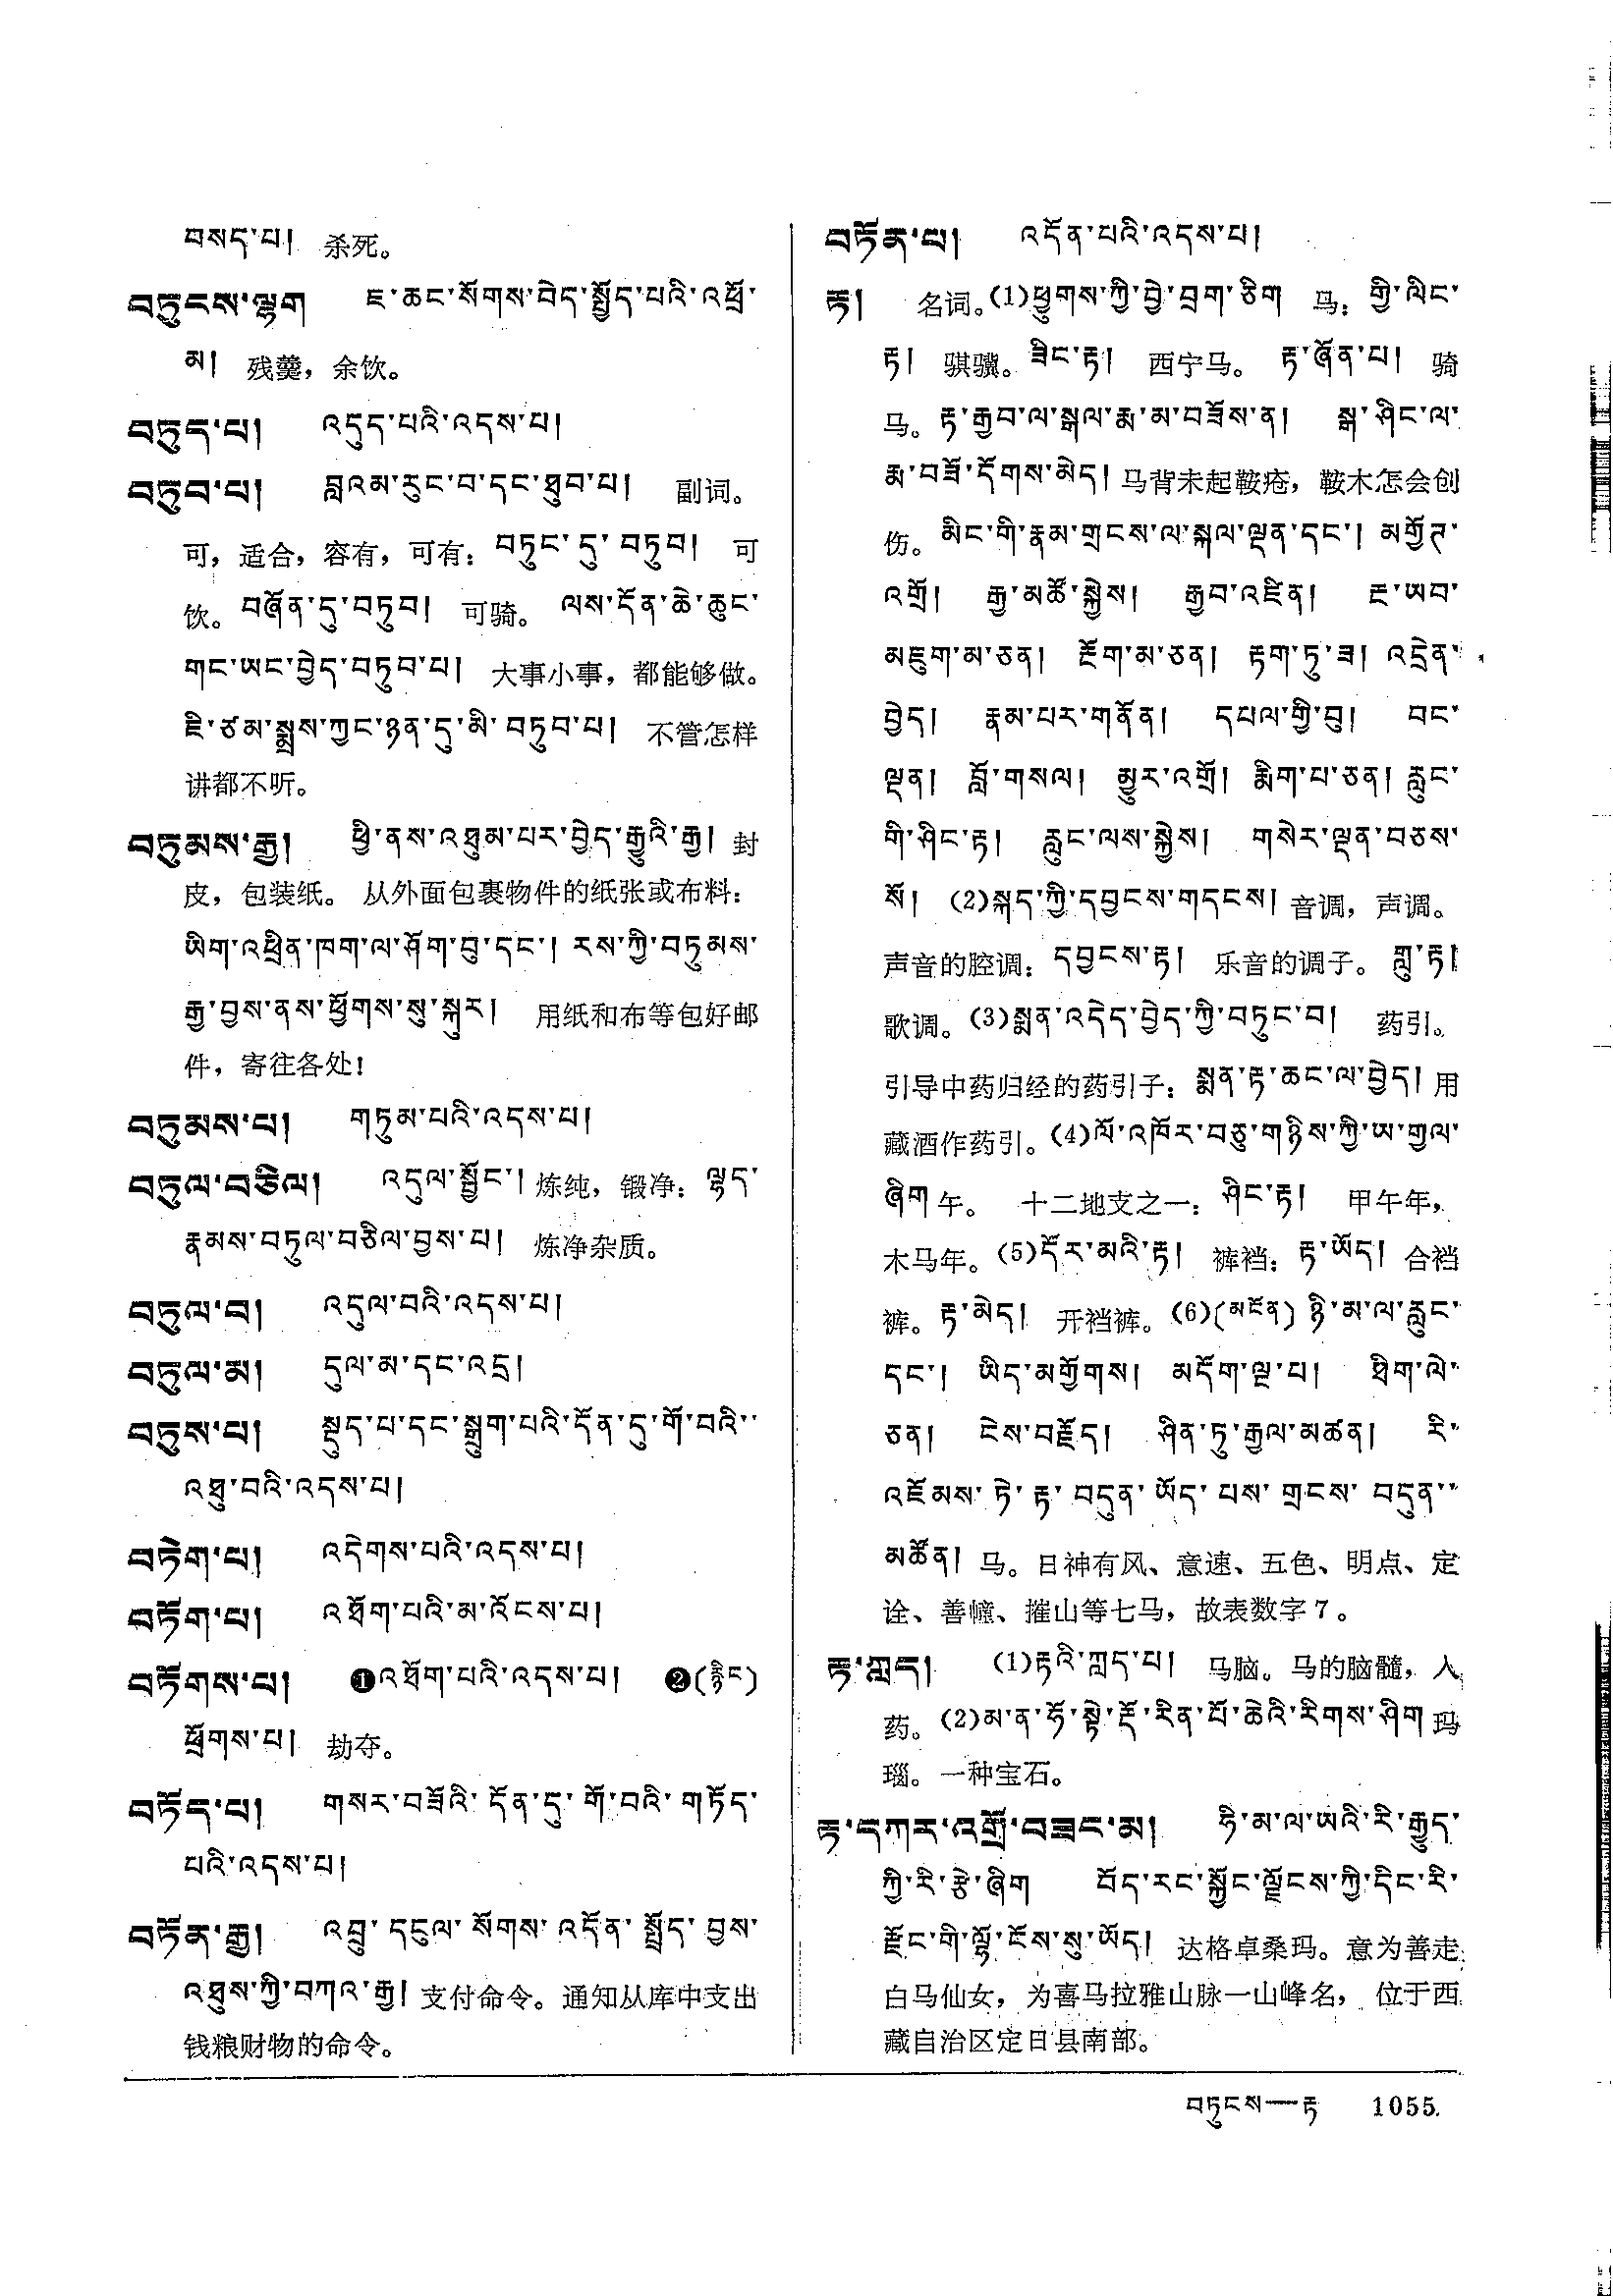 བསད་པ། 杀死。
བཏུངས་ལྷག ཇ་ཆང་སོགས་བེད་སྤྱོད་པའི་འཕྲོ་
མ། 残羹，余饮。
བཏུད་པ། འདུད་པའི་འདས་པ།
བཏུབ་པ། བླའམ་རུང་བ་དང་ཐུབ་པ། 副词。
可，适合，容有，可有：བཏུང་དུ་བཏུབ། 可
饮。བཞོན་དུ་བཏུབ། 可骑。 ལས་དོན་ཆེ་ཆུང་
གང་ཡང་བྱེད་བཏུབ་པ། 大事小事，都能够做。
ཇི་ཙམ་སྨྲས་ཀྱང་ཉན་དུ་མི་བཏུབ་པ། 不管怎样
讲都不听。
བཏུམས་རྒྱ། ཕྱི་ནས་འཐུམ་པར་བྱེད་རྒྱུའི་རྒྱ། 封
皮，包装纸。 从外面包裹物件的纸张或布料：
ཡིག་འཕྲིན་ཁག་ལ་ཤོག་བུ་དང་། རས་ཀྱི་བཏུམས་
རྒྱ་བྱས་ནས་ཕྱོགས་སུ་སྐུར། 用纸和布等包好邮
件，寄往各处!
བཏུམས་པ། གཏུམ་པའི་འདས་པ།
བཏུལ་བཅིལ། འདུལ་སྦྱོང་། 炼纯，锻净：ལྷད་
རྣམས་བཏུལ་བཅིལ་བྱས་པ། 炼净杂质。
བཏུལ་བ། འདུལ་བའི་འདས་པ།
བཏུལ་མ། དུལ་མ་དང་འདྲ།
བཏུས་པ། སྡུད་པ་དང་སྒྲུག་པའི་དོན་དུ་གོ་བའི་
འཐུ་བའི་འདས་པ།
བཏེག་པ། འདེགས་པའི་འདས་པ།
བཏོག་པ། འཐོག་པའི་མ་འོངས་པ།
བཏོགས་པ། ❶འཐོག་པའི་འདས་པ། ❷(རྙིང)
ཕྲོགས་པ། 劫夺。
བཏོད་པ། གསར་བཟོའི་དོན་དུ་གོ་བའི་གཏོད་
པའི་འདས་པ།
བཏོན་རྒྱ། འབྲུ་དངུལ་སོགས་འདོན་སྤྲོད་བྱས་
འཐུས་ཀྱི་བཀའ་རྒྱ། 支付命令。通知从库中支出
钱粮财物的命令。
བཏོན་པ། འདོན་པའི་འདས་པ།
རྟ། 名词。(1)ཕྱུགས་ཀྱི་བྱེ་བྲག་ཅིག 马：གྱི་ལིང་
རྟ། 骐骥。ཟིང་རྟ། 西宁马。 རྟ་ཞོན་པ། 骑
马。རྟ་རྒྱབ་ལ་སྒལ་རྨ་མ་བཟོས་ན། སྒ་ཤིང་ལ་
རྨ་བཟོ་དོགས་མེད། 马背未起鞍疮，鞍木怎会创
伤。མིང་གི་རྣམ་གྲངས་ལ་སྐལ་ལྡན་དང་། མགྱོཊ་
འགྲོ། རྒྱ་མཚོ་སྐྱེས། རྒྱབ་འཛིན། ཇ་ཡབ་
མཇུག་མ་ཅན། རྔོག་མ་ཅན། རྟག་ཏུ་ཟ། འདྲེན་
བྱེད། རྣམ་པར་གནོན། དཔལ་གྱི་བུ། བང་
ལྡན། བློ་གསལ། མྱུར་འགྲོ། རྨིག་པ་ཅན། རླུང་
གི་ཤིང་རྟ། རླུང་ལས་སྐྱེས། གསེར་ལྡན་བཅས་
སོ། (2)སྐད་ཀྱི་དབྱངས་གདངས། 音调，声调。
声音的腔调：དབྱངས་རྟ། 乐音的调子。 གླུ་རྟ།
歌调。(3)སྨན་འདེད་བྱེད་ཀྱི་བཏུང་བ། 药引。
引导中药归经的药引子：སྨན་རྟ་ཆང་ལ་བྱེད། 用
藏酒作药引。(4)ལོ་འཁོར་བཅུ་གཉིས་ཀྱི་ཨ་གྱལ་
ཞིག 午。 十二地支之一：ཤིང་རྟ། 甲午年，
木马年。(5)དོར་མའི་རྟ། 裤裆：རྟ་ཡོད། 合裆
裤。རྟ་མེད། 开裆裤。(6)(མངོན) ཉི་མ་ལ་རླུང་
དང་། ཡིད་མགྱོགས། མདོག་ལྔ་པ། ཐིག་ལེ་
ཅན། ངེས་བརྗོད། ཤིན་ཏུ་རྒྱལ་མཚན། རི་
འཇོམས་ཏེ་རྟ་བདུན་ཡོད་པས་གྲངས་བདུན་
མཚོན། 马。日神有风、意速、五色、明点、定
诠、善幢、摧山等七马，故表数字7。
རྟ་ཀླད། (1)རྟའི་ཀླད་པ། 马脑。马的脑髓，入
药。(2)མ་ན་ཧོ་སྟེ་རྡོ་རིན་པོ་ཆེའི་རིགས་ཤིག 玛
瑙。一种宝石。
རྟ་དཀར་འགྲོ་བཟང་མ། ཧི་མ་ལ་ཡའི་རི་རྒྱུད་
ཀྱི་རི་རྩེ་ཞིག བོད་རང་སྐྱོང་ལྗོངས་ཀྱི་དིང་རི་
རྫོང་གི་ལྷོ་ངོས་སུ་ཡོད། 达格卓桑玛。意为善走
白马仙女，为喜马拉雅山脉一山峰名， 位于西
藏自治区定日县南部。
བཏུངས—རྟ 1055